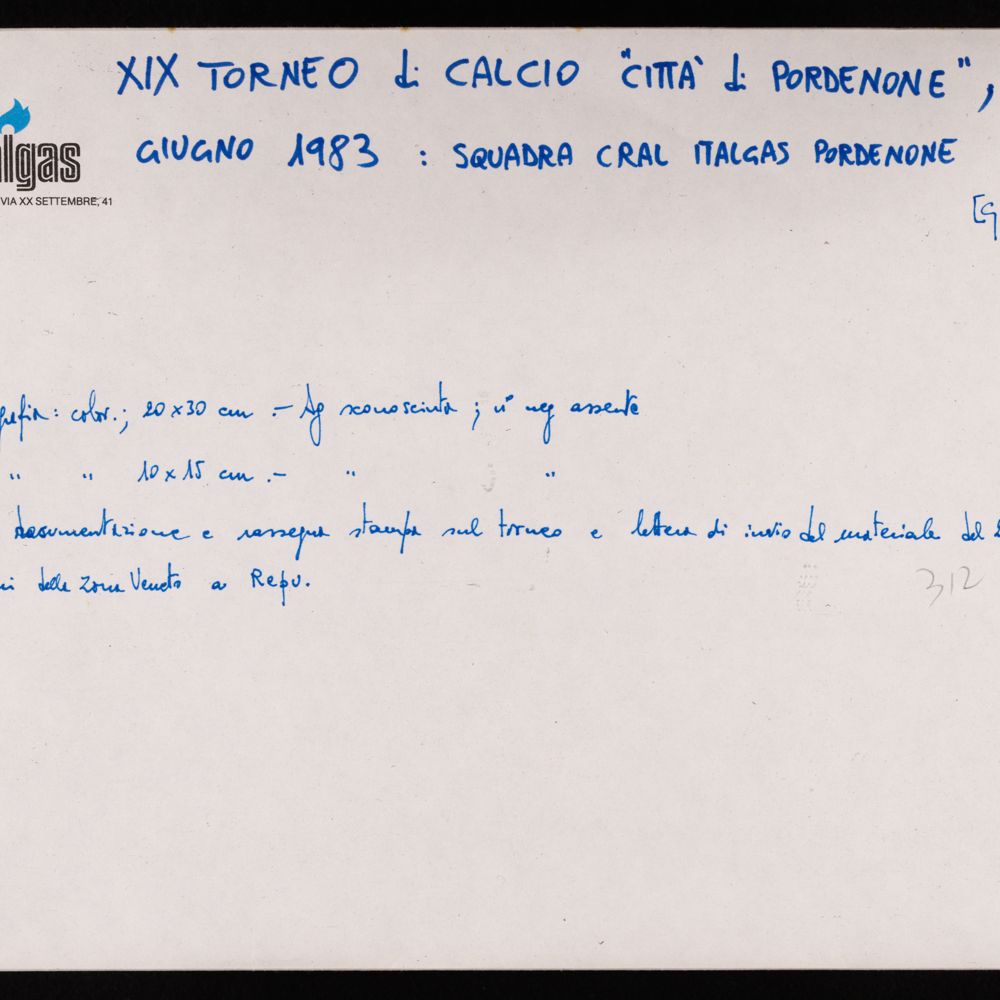 XIX TORNEO di CALCIO "CITTÀ di PORDENONE",
GIUGNO 1983 : SQUADRA CRAL ITALGAS PORDENONE
lgas
VIA XX SETTEMBRE, 41
[G
grafia: color.; 20 x 30 cm .- Ag sconosciuta ; n° neg assente
" " 10 x 15 cm .- " "
documentazione e rassegna stampa sul torneo e lettera di invio del materiale del 2
ni della Zona Veneto a Repu.
312